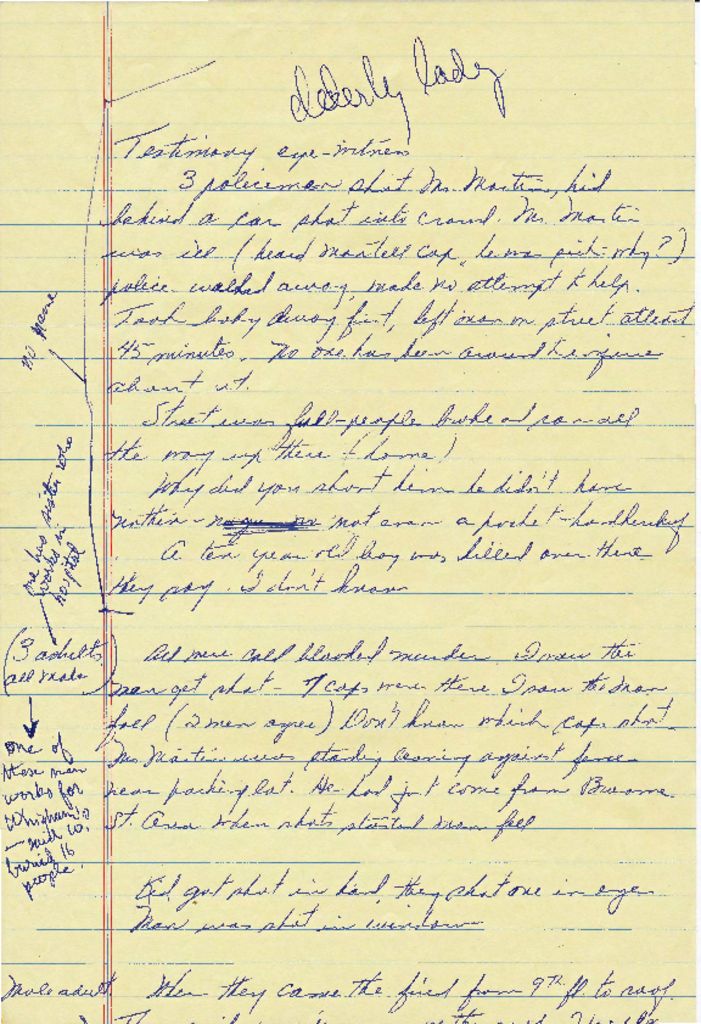 elderly lady
Testimony eye-witness
3 policeman shot Mr. Martin, hid
behind a car shot into crowd. Mr. Martin
was ill (heard Martell cop, he was sick - why?)
police walked away, made no attempt to help.
Took body away first, left man on street atleast
45 minutes. No one has been around to
about it.
Street was full - people broke and ran all
the way up there (home)
Why did you shoot him he didn't have
nothin - not even a pocket-handkerchief
A ten year old boy was killed over there
they say. I don't know
no name
one has sister who
works in
hospital
(3 adults
all male)
All were cold blooded murder. I saw the
man get shot - 7 cops were there. I saw the man
fall (2 men agree) Don't know which cops shot.
Mr. Martin was standing leaning against fence
near parking lot. He had just come from Broome
St. Area when shots started man fell
one of
these men
works for
Whigham's
- said W.
buried 16
people.
Kid got shot in hand, they shot one in eye
Man was shot in window
Male adult. When they came the fired from 9th fl. to roof.